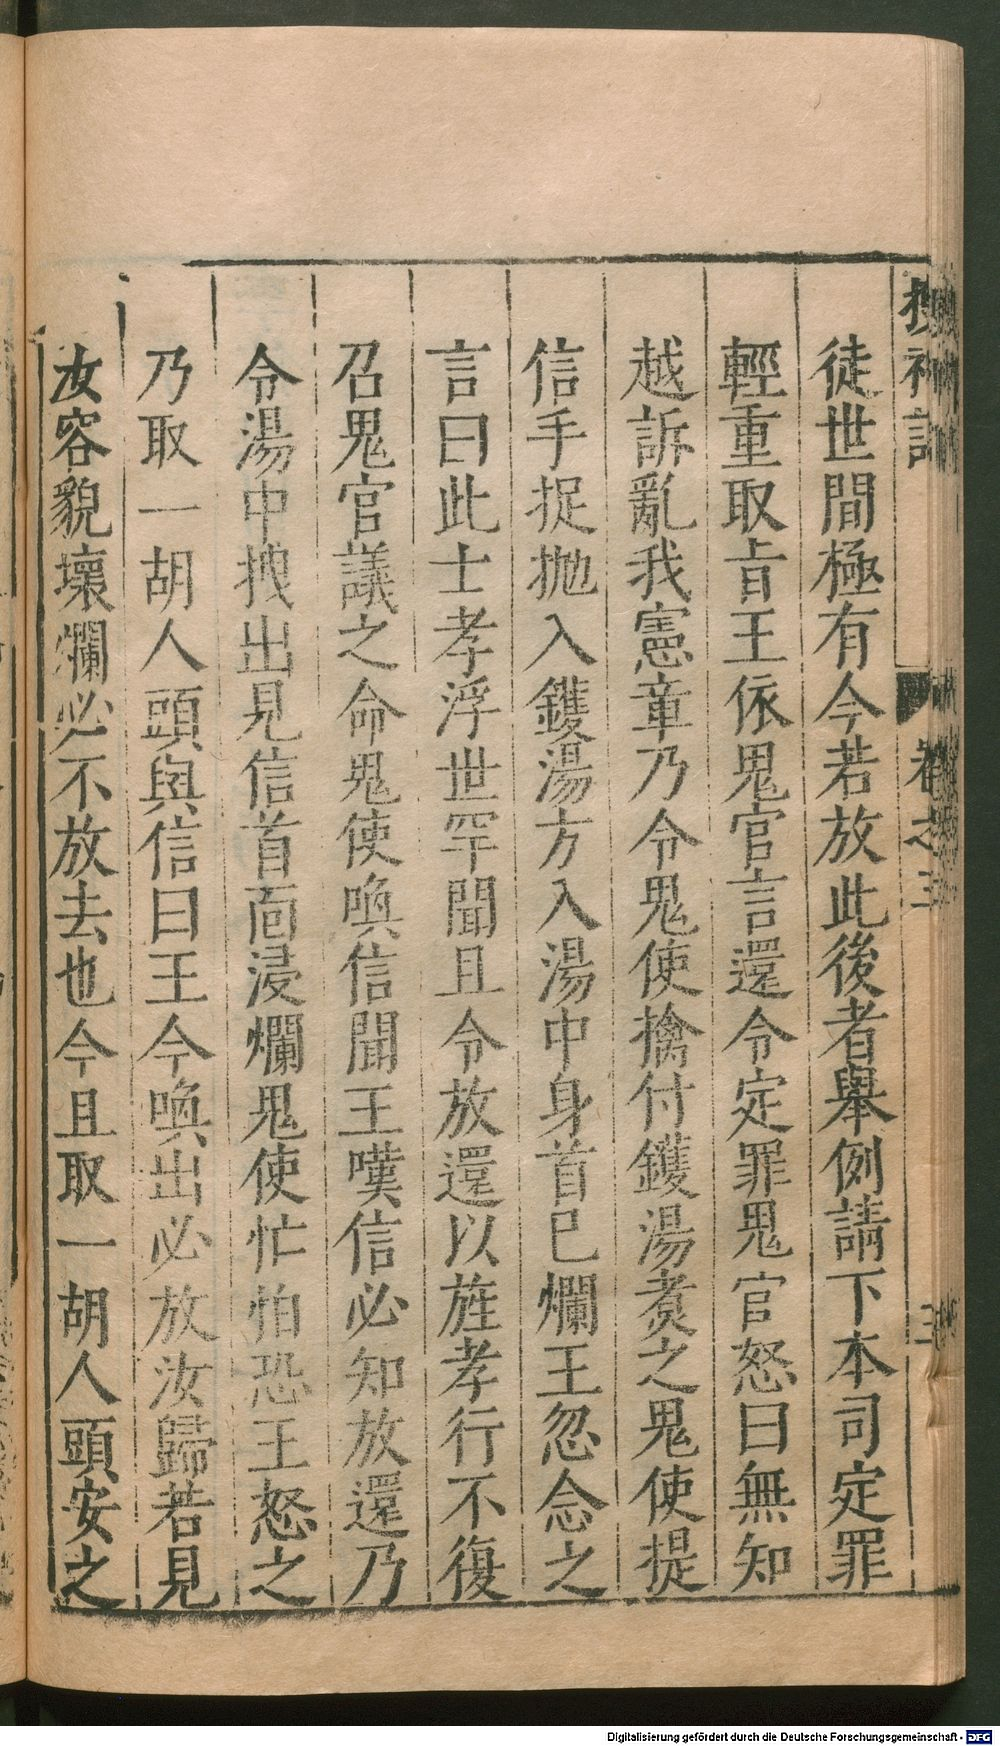 搜神記
卷之三
三
徒世間極有今若放此後者舉例請下本司定罪
輕重取旨王依鬼官言還令定罪鬼官怒曰無知
越訴亂我憲章乃令鬼使擒付鑊湯煑之鬼使提
信手捉抛入鑊湯方入湯中身首已爛王忽念之
言曰此士孝浮世罕聞且令放還以旌孝行不復
召鬼官議之命鬼使喚信聞王嘆信必知放還乃
令湯中拽出見信首面浸爛鬼使忙怕恐王怒之
乃取一胡人頭與信曰王今喚出必放汝歸若見
汝容貌壞爛必不放去也今且取一胡人頭安之
Digitalisierung gefördert durch die Deutsche Forschungsgemeinschaft - DFG